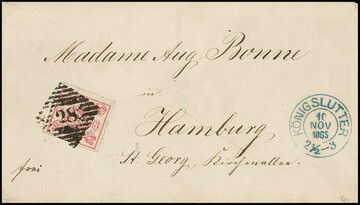 Madame Aug. Bonne
in
Hamburg
St. Georg, Kirchenallee.
frei
28
KÖNIGSLUTTER
10
NOV
1865
2½-3